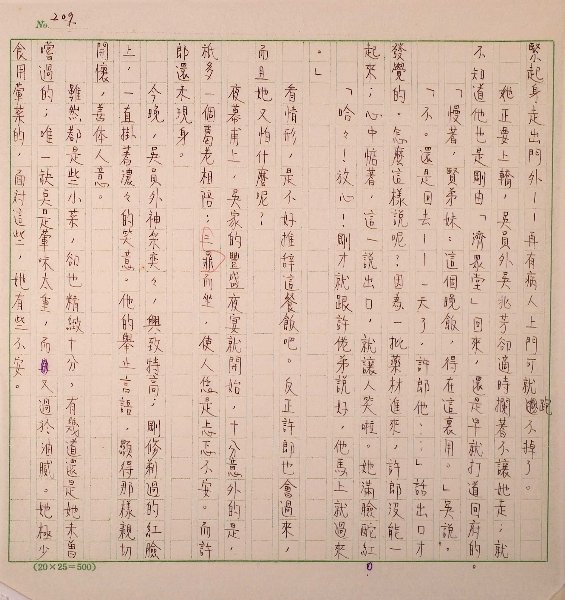 No. 209.
緊起身走出門外——再有病人上門可就跑不掉了。
她正要上轎，吳員外吳兆芳卻適時攔著不讓她走；就
不知道他也是剛由「濟眾堂」回來，還是早就打道回府的。
「慢著，賢弟妹：這個晚飯，得在這裏用。」吳說。
「不。還是回去——一天了，許郎他‥‥」話出口才
發覺的。怎麼這樣說呢？因為一批藥材進來，許郎沒能一
起來；心中惦著，這一說出口，就讓人笑啦。她滿臉酡紅
。」
「哈々！放心！剛才就跟許佬弟說好，他馬上就過來
看情形，是不好推辭這餐飯吧。反正許郎也會過來，
而且她又怕什麼呢？
夜幕甫上，吳家的豐盛夜宴就開始，十分意外的是，
祇多一個葛老相陪；三
而坐，使人總是忐忑不安。而許
郎還未現身。
今晚，吳員外神采奕々，興致特高；剛修剃過的紅臉
上，一直掛著濃々的笑意。他的舉止言語，顯得那樣親切
開懷，善體人意。
雖然都是些小菜，卻也精緻十分，有幾道還是她未曾
嚐過的；唯一缺失是葷味太重，而且又過於油膩。她極少
食用葷菜的，面對這些，她有些不安。
(20×25=500)